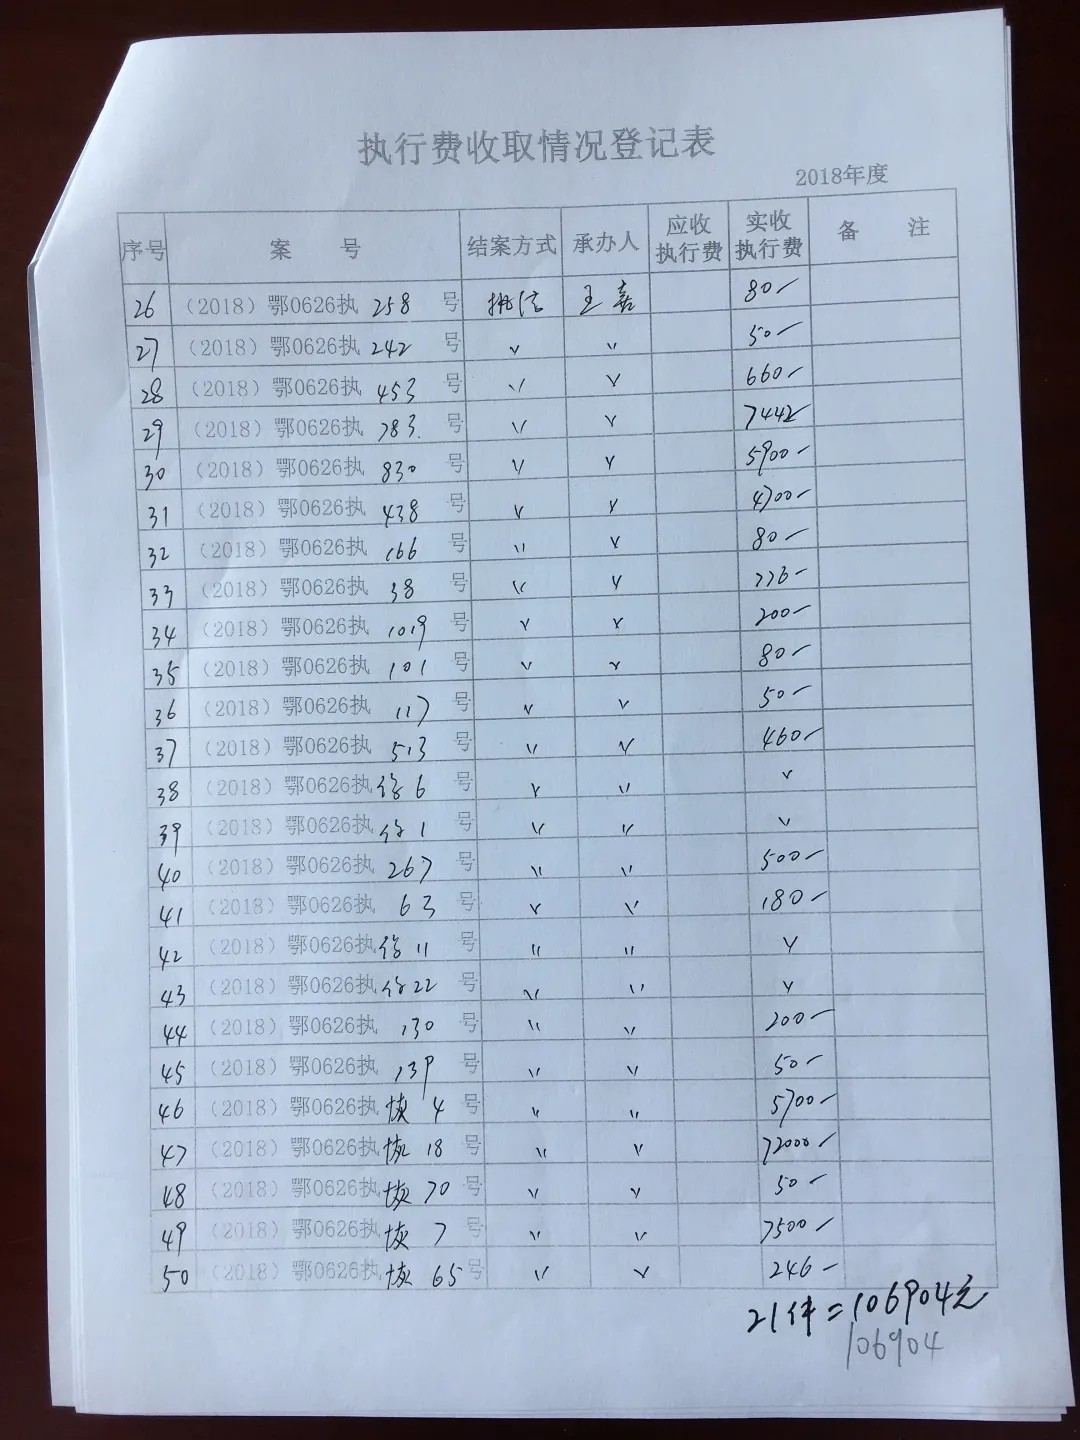 执行费收取情况登记表
2018年度
序号 案 号 结案方式 承办人 应收执行费 实收执行费 备 注
26 (2018) 鄂0626执 258 号 王 80-
27 (2018) 鄂0626执 242 号 〃 〃 50-
28 (2018) 鄂0626执 453 号 〃 〃 660-
29 (2018) 鄂0626执 783 号 〃 〃 7442
30 (2018) 鄂0626执 830 号 〃 〃 5900-
31 (2018) 鄂0626执 438 号 〃 〃 4700-
32 (2018) 鄂0626执 166 号 〃 〃 80-
33 (2018) 鄂0626执 38 号 〃 〃 776-
34 (2018) 鄂0626执 1019 号 〃 〃 200-
35 (2018) 鄂0626执 101 号 〃 〃 80-
36 (2018) 鄂0626执 117 号 〃 〃 50-
37 (2018) 鄂0626执 513 号 〃 〃 460-
38 (2018) 鄂0626执 6 号 〃 〃 〃
39 (2018) 鄂0626执 1 号 〃 〃 〃
40 (2018) 鄂0626执 267 号 〃 〃 500-
41 (2018) 鄂0626执 63 号 〃 〃 180-
42 (2018) 鄂0626执 11 号 〃 〃 〃
43 (2018) 鄂0626执 22 号 〃 〃 〃
44 (2018) 鄂0626执 130 号 〃 〃 200-
45 (2018) 鄂0626执 139 号 〃 〃 50-
46 (2018) 鄂0626执恢 4 号 〃 〃 5700-
47 (2018) 鄂0626执恢 18 号 〃 〃 72000-
48 (2018) 鄂0626执恢 70 号 〃 〃 50-
49 (2018) 鄂0626执恢 7 号 〃 〃 7500-
50 (2018) 鄂0626执恢 65 号 〃 〃 246-
21件=106904元
106904